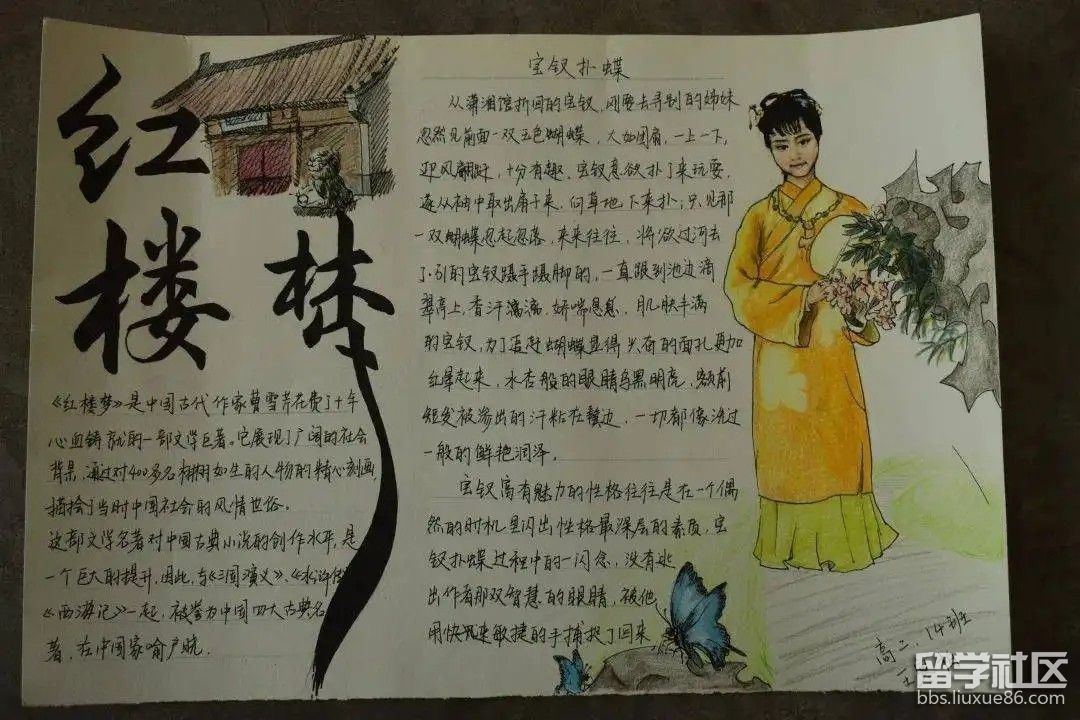 红
楼梦
《红楼梦》是中国古代作家曹雪芹花费了十年
心血铸就的一部文学巨著。它展现了广阔的社会
背景，通过对400多名栩栩如生的人物的精心刻画，
描绘了当时中国社会的风情世俗。
这部文学名著对中国古典小说的创作水平，是
一个巨大的提升，因此，与《三国演义》、《水浒传》
《西游记》一起，被誉为中国四大古典名
著，在中国家喻户晓。
宝钗扑蝶
从潇湘馆折回的宝钗，刚要去寻别的姊妹
忽然见前面一双玉色蝴蝶，大如团扇，一上一下，
迎风翩跹，十分有趣。宝钗意欲扑了来玩耍，
遂从袖中取出扇子来，向草地下来扑；只见那
一双蝴蝶忽起忽落，来来往往，将欲过河去
了。引的宝钗蹑手蹑脚的，一直跟到池边滴
翠亭上，香汗淋漓，娇喘息息，肌肤丰满
的宝钗，为了追赶蝴蝶显得兴奋的面孔更加
红晕起来，水杏般的眼睛乌黑明亮，额前
短发被渗出的汗粘在鬓边，一切都像洗过
一般的鲜艳润泽。
宝钗富有魅力的性格往往是在一个偶
然的时机里闪出性格最深层的素质，宝
钗扑蝶过程中的一闪念，没有逃
出作者那双智慧的眼睛，被他
用快捷敏捷的手捕捉了回来
高二 14班
留学社区
bbs.liuxue86.com